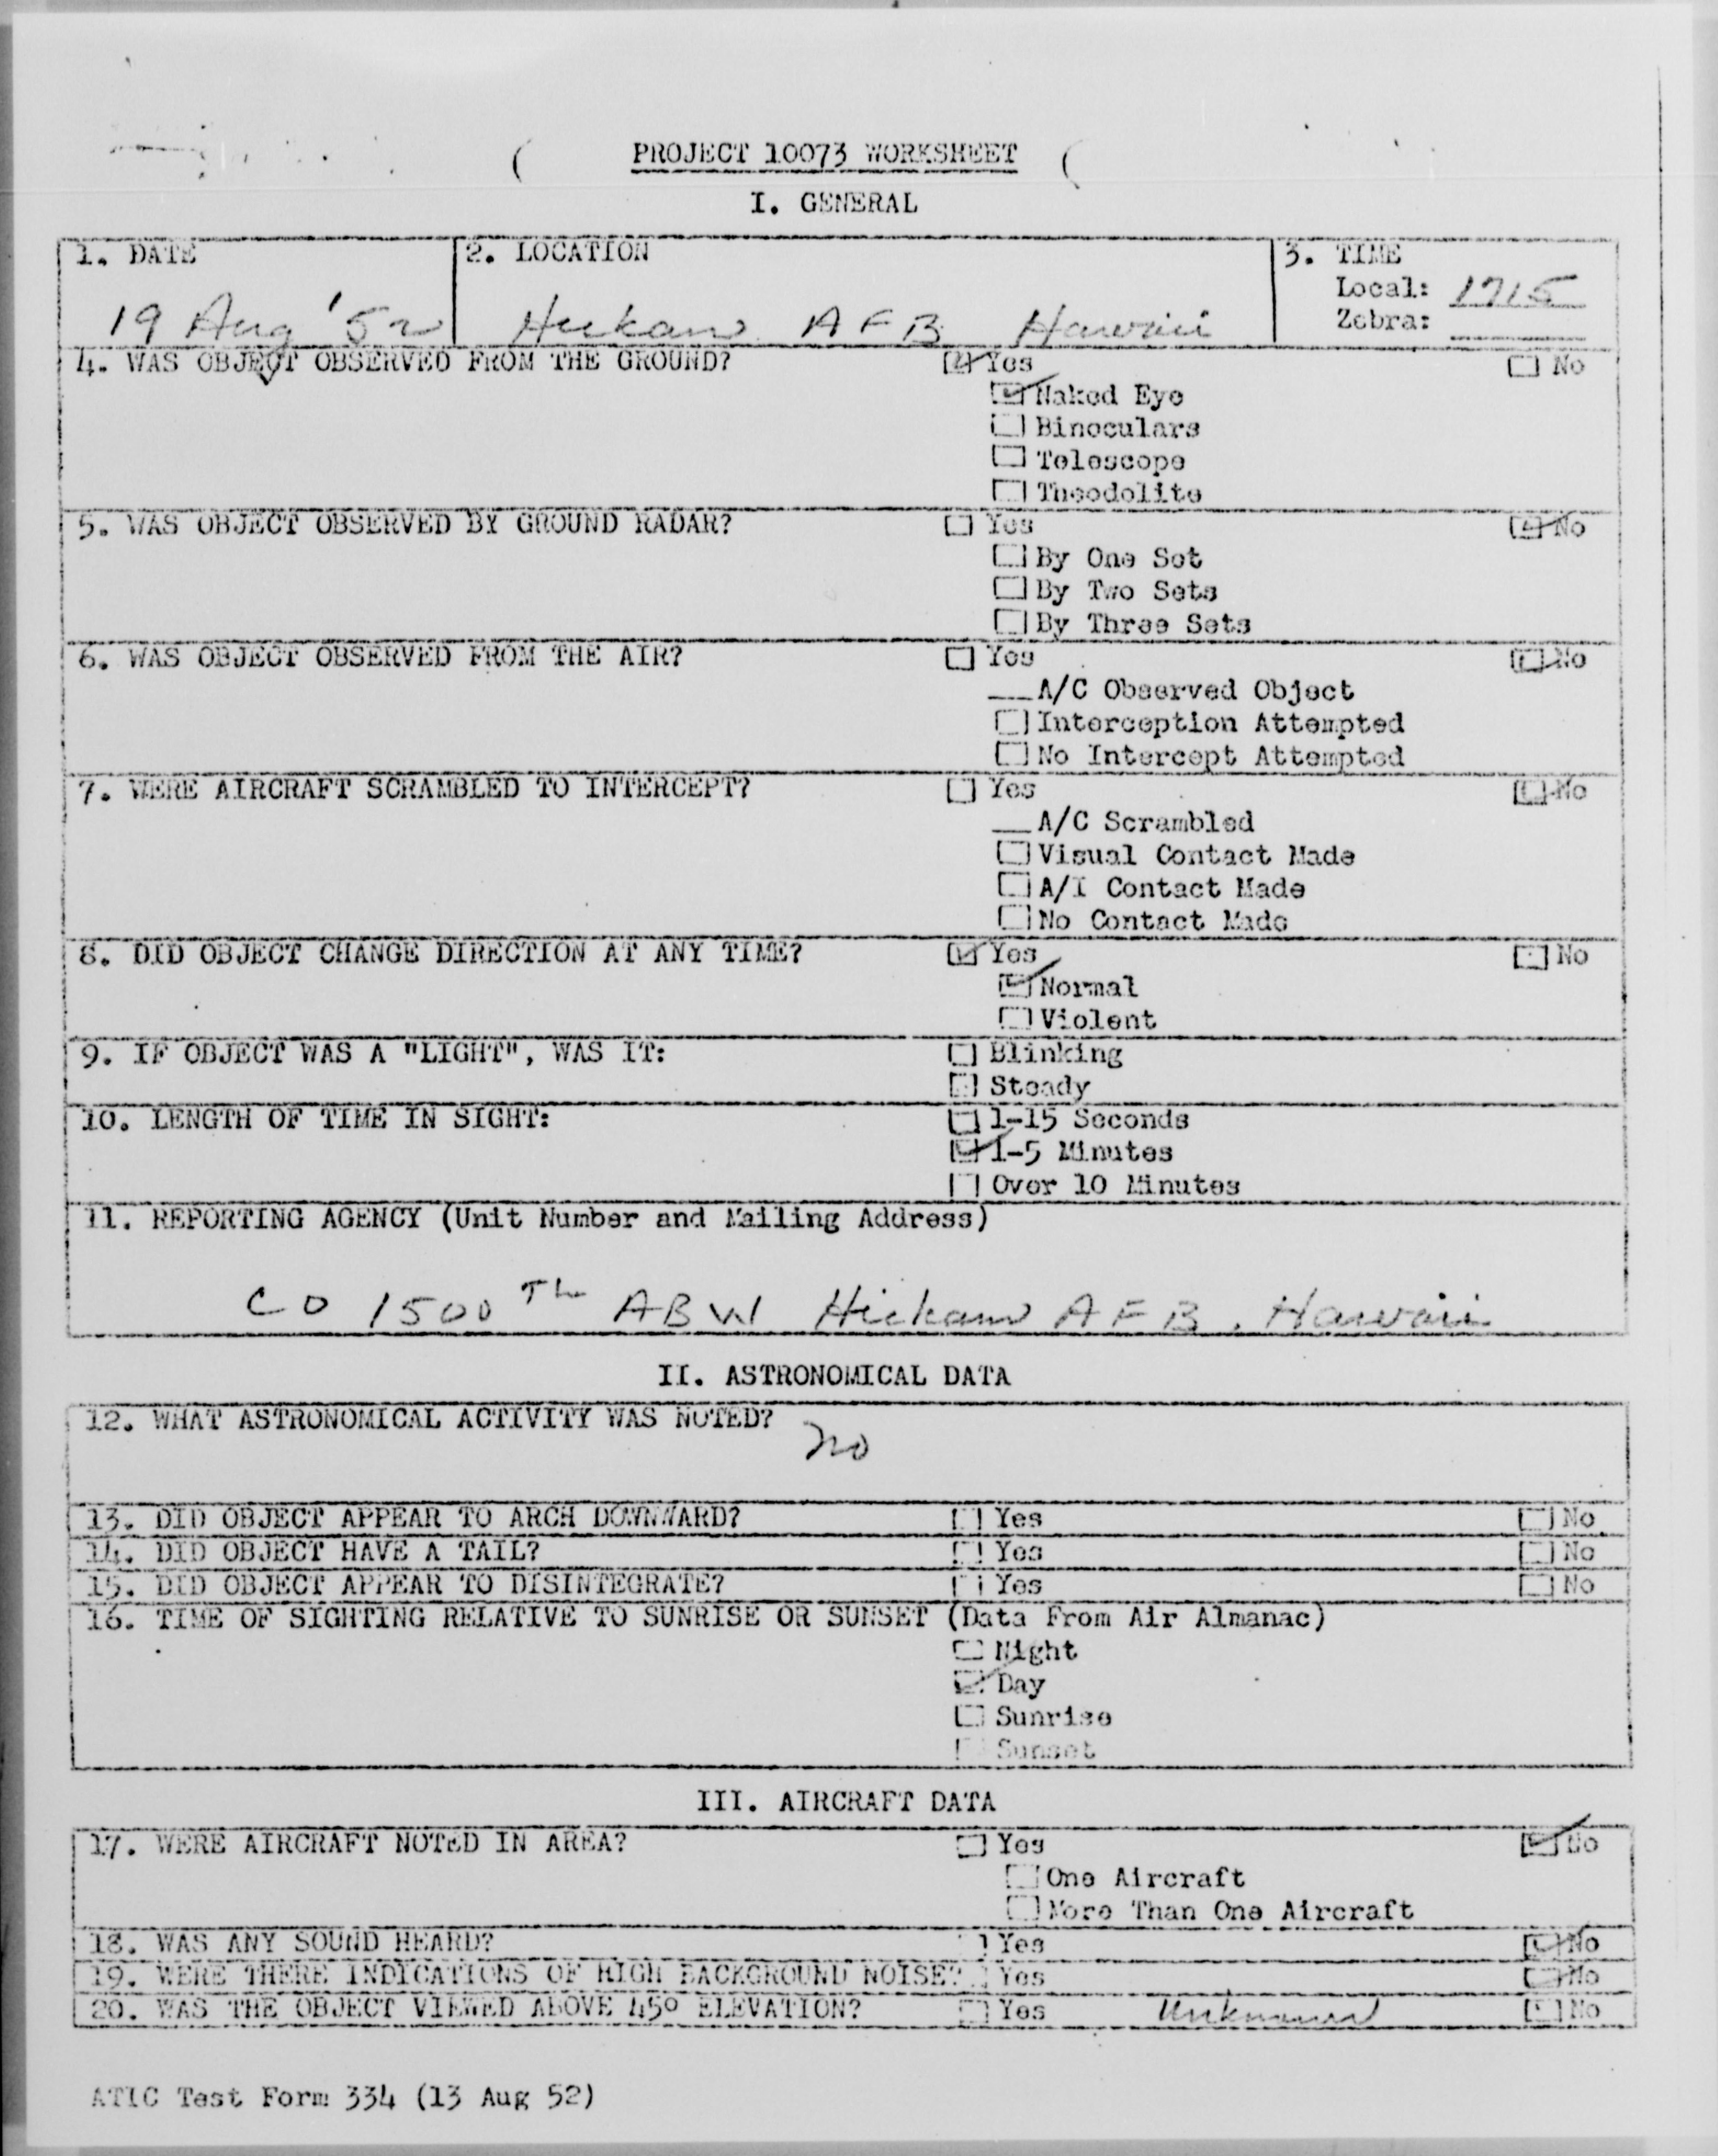 PROJECT 10073 WORKSHEET
I. GENERAL
1. DATE 2. LOCATION 3. TIME
Local: 1715
19 Aug '52 Hickam AFB Hawaii Zebra:
4. WAS OBJECT OBSERVED FROM THE GROUND? ☑ Yes ☐ No
☑ Naked Eye
☐ Binoculars
☐ Telescope
☐ Theodolite
5. WAS OBJECT OBSERVED BY GROUND RADAR? ☐ Yes ☑ No
☐ By One Set
☐ By Two Sets
☐ By Three Sets
6. WAS OBJECT OBSERVED FROM THE AIR? ☐ Yes ☑ No
__A/C Observed Object
☐ Interception Attempted
☐ No Intercept Attempted
7. WERE AIRCRAFT SCRAMBLED TO INTERCEPT? ☐ Yes ☑ No
__A/C Scrambled
☐ Visual Contact Made
☐ A/I Contact Made
☐ No Contact Made
8. DID OBJECT CHANGE DIRECTION AT ANY TIME? ☑ Yes ☐ No
☑ Normal
☐ Violent
9. IF OBJECT WAS A "LIGHT", WAS IT: ☐ Blinking
☐ Steady
10. LENGTH OF TIME IN SIGHT: ☐ 1-15 Seconds
☑ 1-5 Minutes
☐ Over 10 Minutes
11. REPORTING AGENCY (Unit Number and Mailing Address)
CO 1500Th ABW Hickam AFB, Hawaii
II. ASTRONOMICAL DATA
12. WHAT ASTRONOMICAL ACTIVITY WAS NOTED?
no
13. DID OBJECT APPEAR TO ARCH DOWNWARD? ☐ Yes ☐ No
14. DID OBJECT HAVE A TAIL? ☐ Yes ☐ No
15. DID OBJECT APPEAR TO DISINTEGRATE? ☐ Yes ☐ No
16. TIME OF SIGHTING RELATIVE TO SUNRISE OR SUNSET (Data From Air Almanac)
☐ Night
☑ Day
☐ Sunrise
☐ Sunset
III. AIRCRAFT DATA
17. WERE AIRCRAFT NOTED IN AREA? ☐ Yes ☑ No
☐ One Aircraft
☐ More Than One Aircraft
18. WAS ANY SOUND HEARD? ☐ Yes ☑ No
19. WERE THERE INDICATIONS OF HIGH BACKGROUND NOISE? ☐ Yes ☑ No
20. WAS THE OBJECT VIEWED ABOVE 45° ELEVATION? ☐ Yes Unknown ☐ No
ATIC Test Form 334 (13 Aug 52)